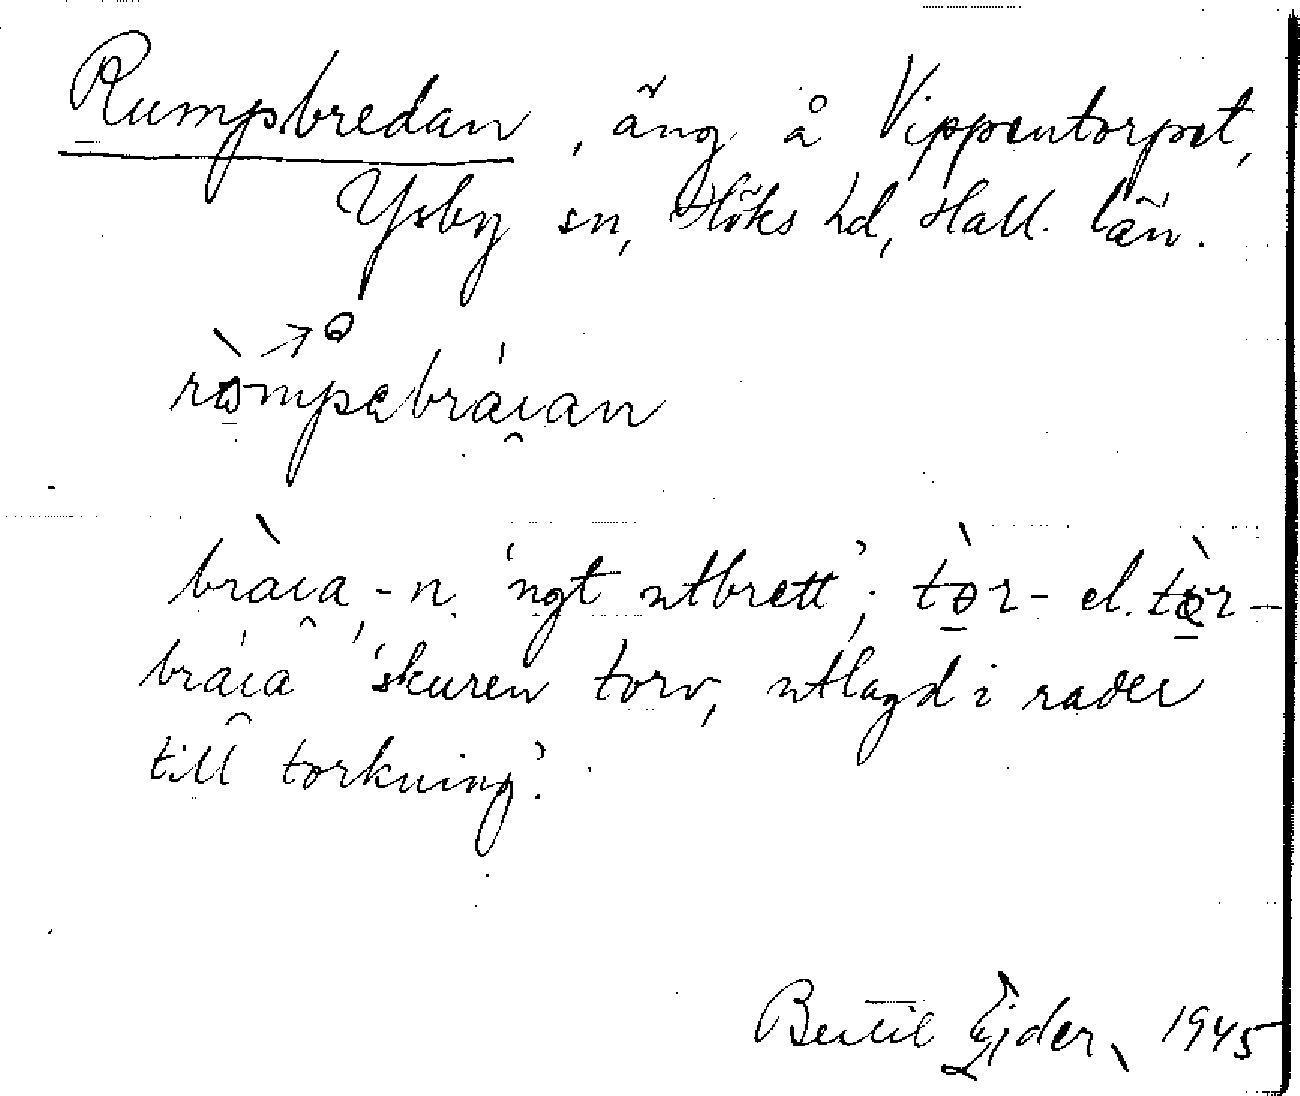 Rumpsbredan, äng å Vippentorpet,
Ysby sn, Höks hd, Hall. län.
bràıa, -n. 'ngt utbrett'; tɵ̀r- el. tòr-
bráıa 'skuren torv, utlagd i rader
till torkning'.
Bertil Ejder, 1945